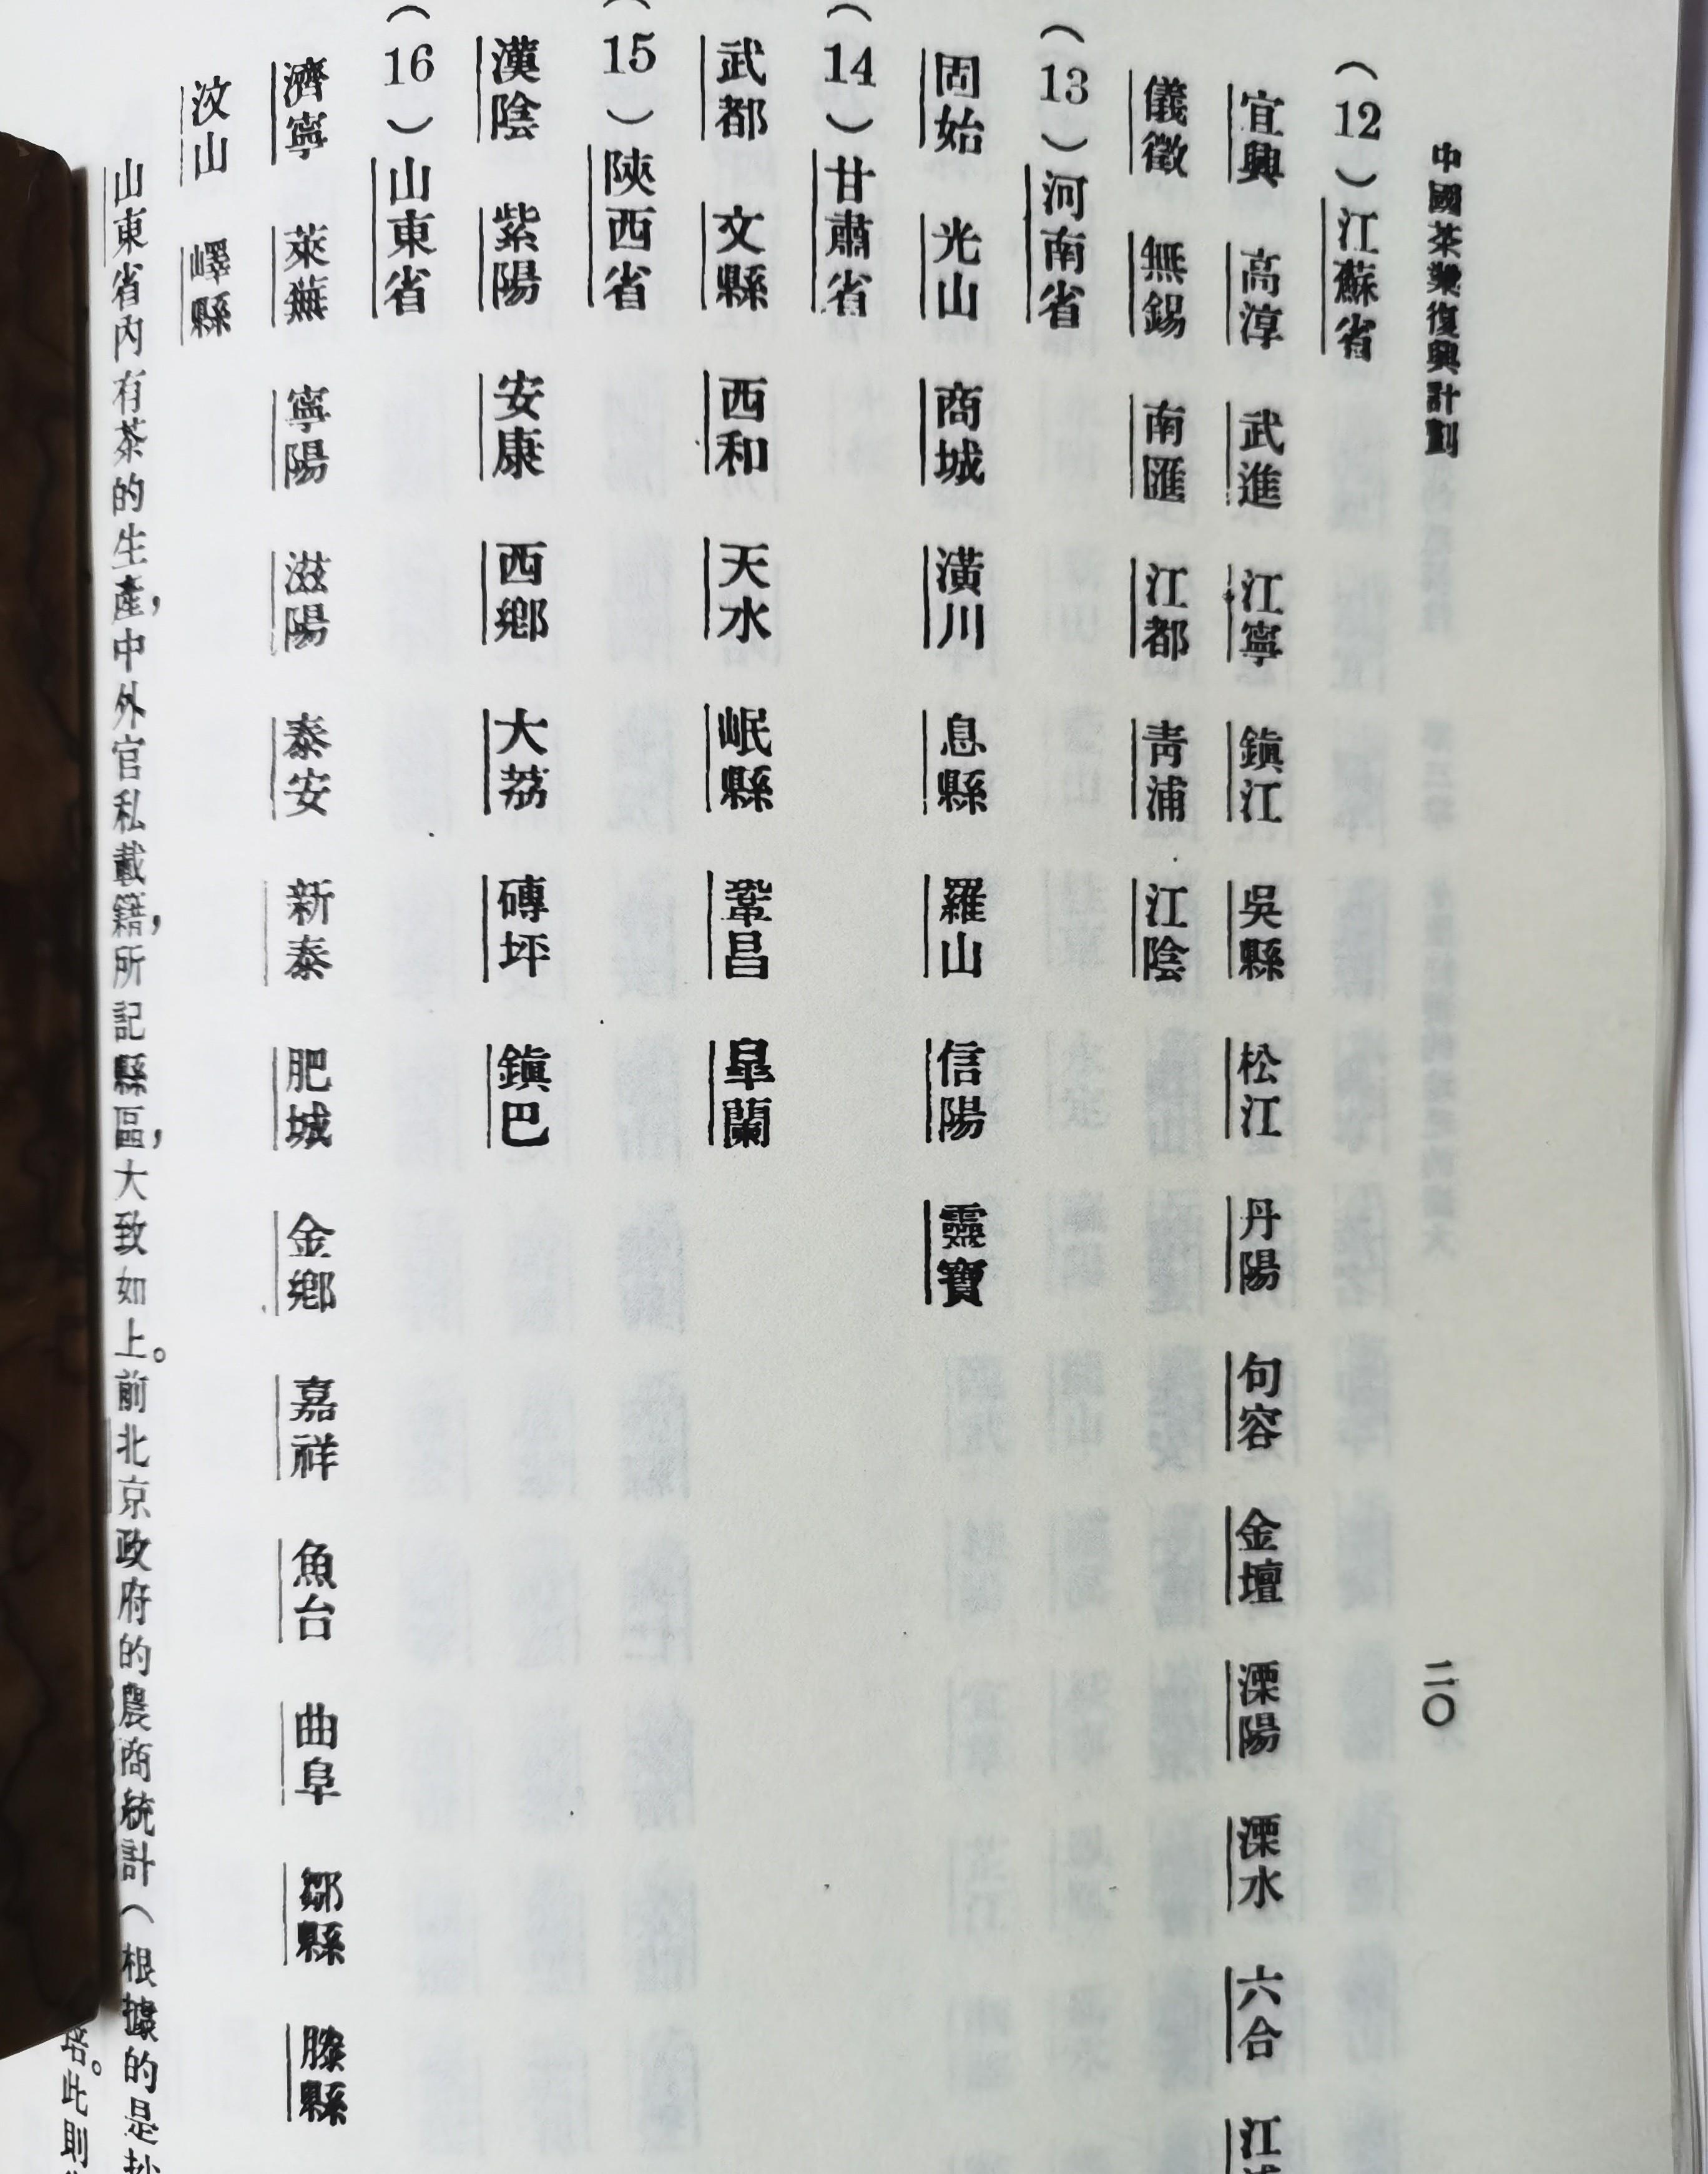 中國茶業復興計劃　二〇
（12）江蘇省
宜興　高淳　武進　江寧　鎭江　吳縣　松江　丹陽　句容　金壇　溧陽　溧水　六合　江
儀徵　無錫　南匯　江都　靑浦　江陰
（13）河南省
固始　光山　商城　潢川　息縣　羅山　信陽　靈寶
（14）甘肅省
武都　文縣　西和　天水　岷縣　鞏昌　臯蘭
（15）陝西省
漢陰　紫陽　安康　西鄕　大荔　磚坪　鎭巴
（16）山東省
濟寧　萊蕪　寧陽　滋陽　泰安　新泰　肥城　金鄕　嘉祥　魚台　曲阜　鄒縣　滕縣
汶山　嶧縣
山東省內有茶的生產，中外官私載籍，所記縣區，大致如上。前北京政府的農商統計（根據的是抄
培。此則